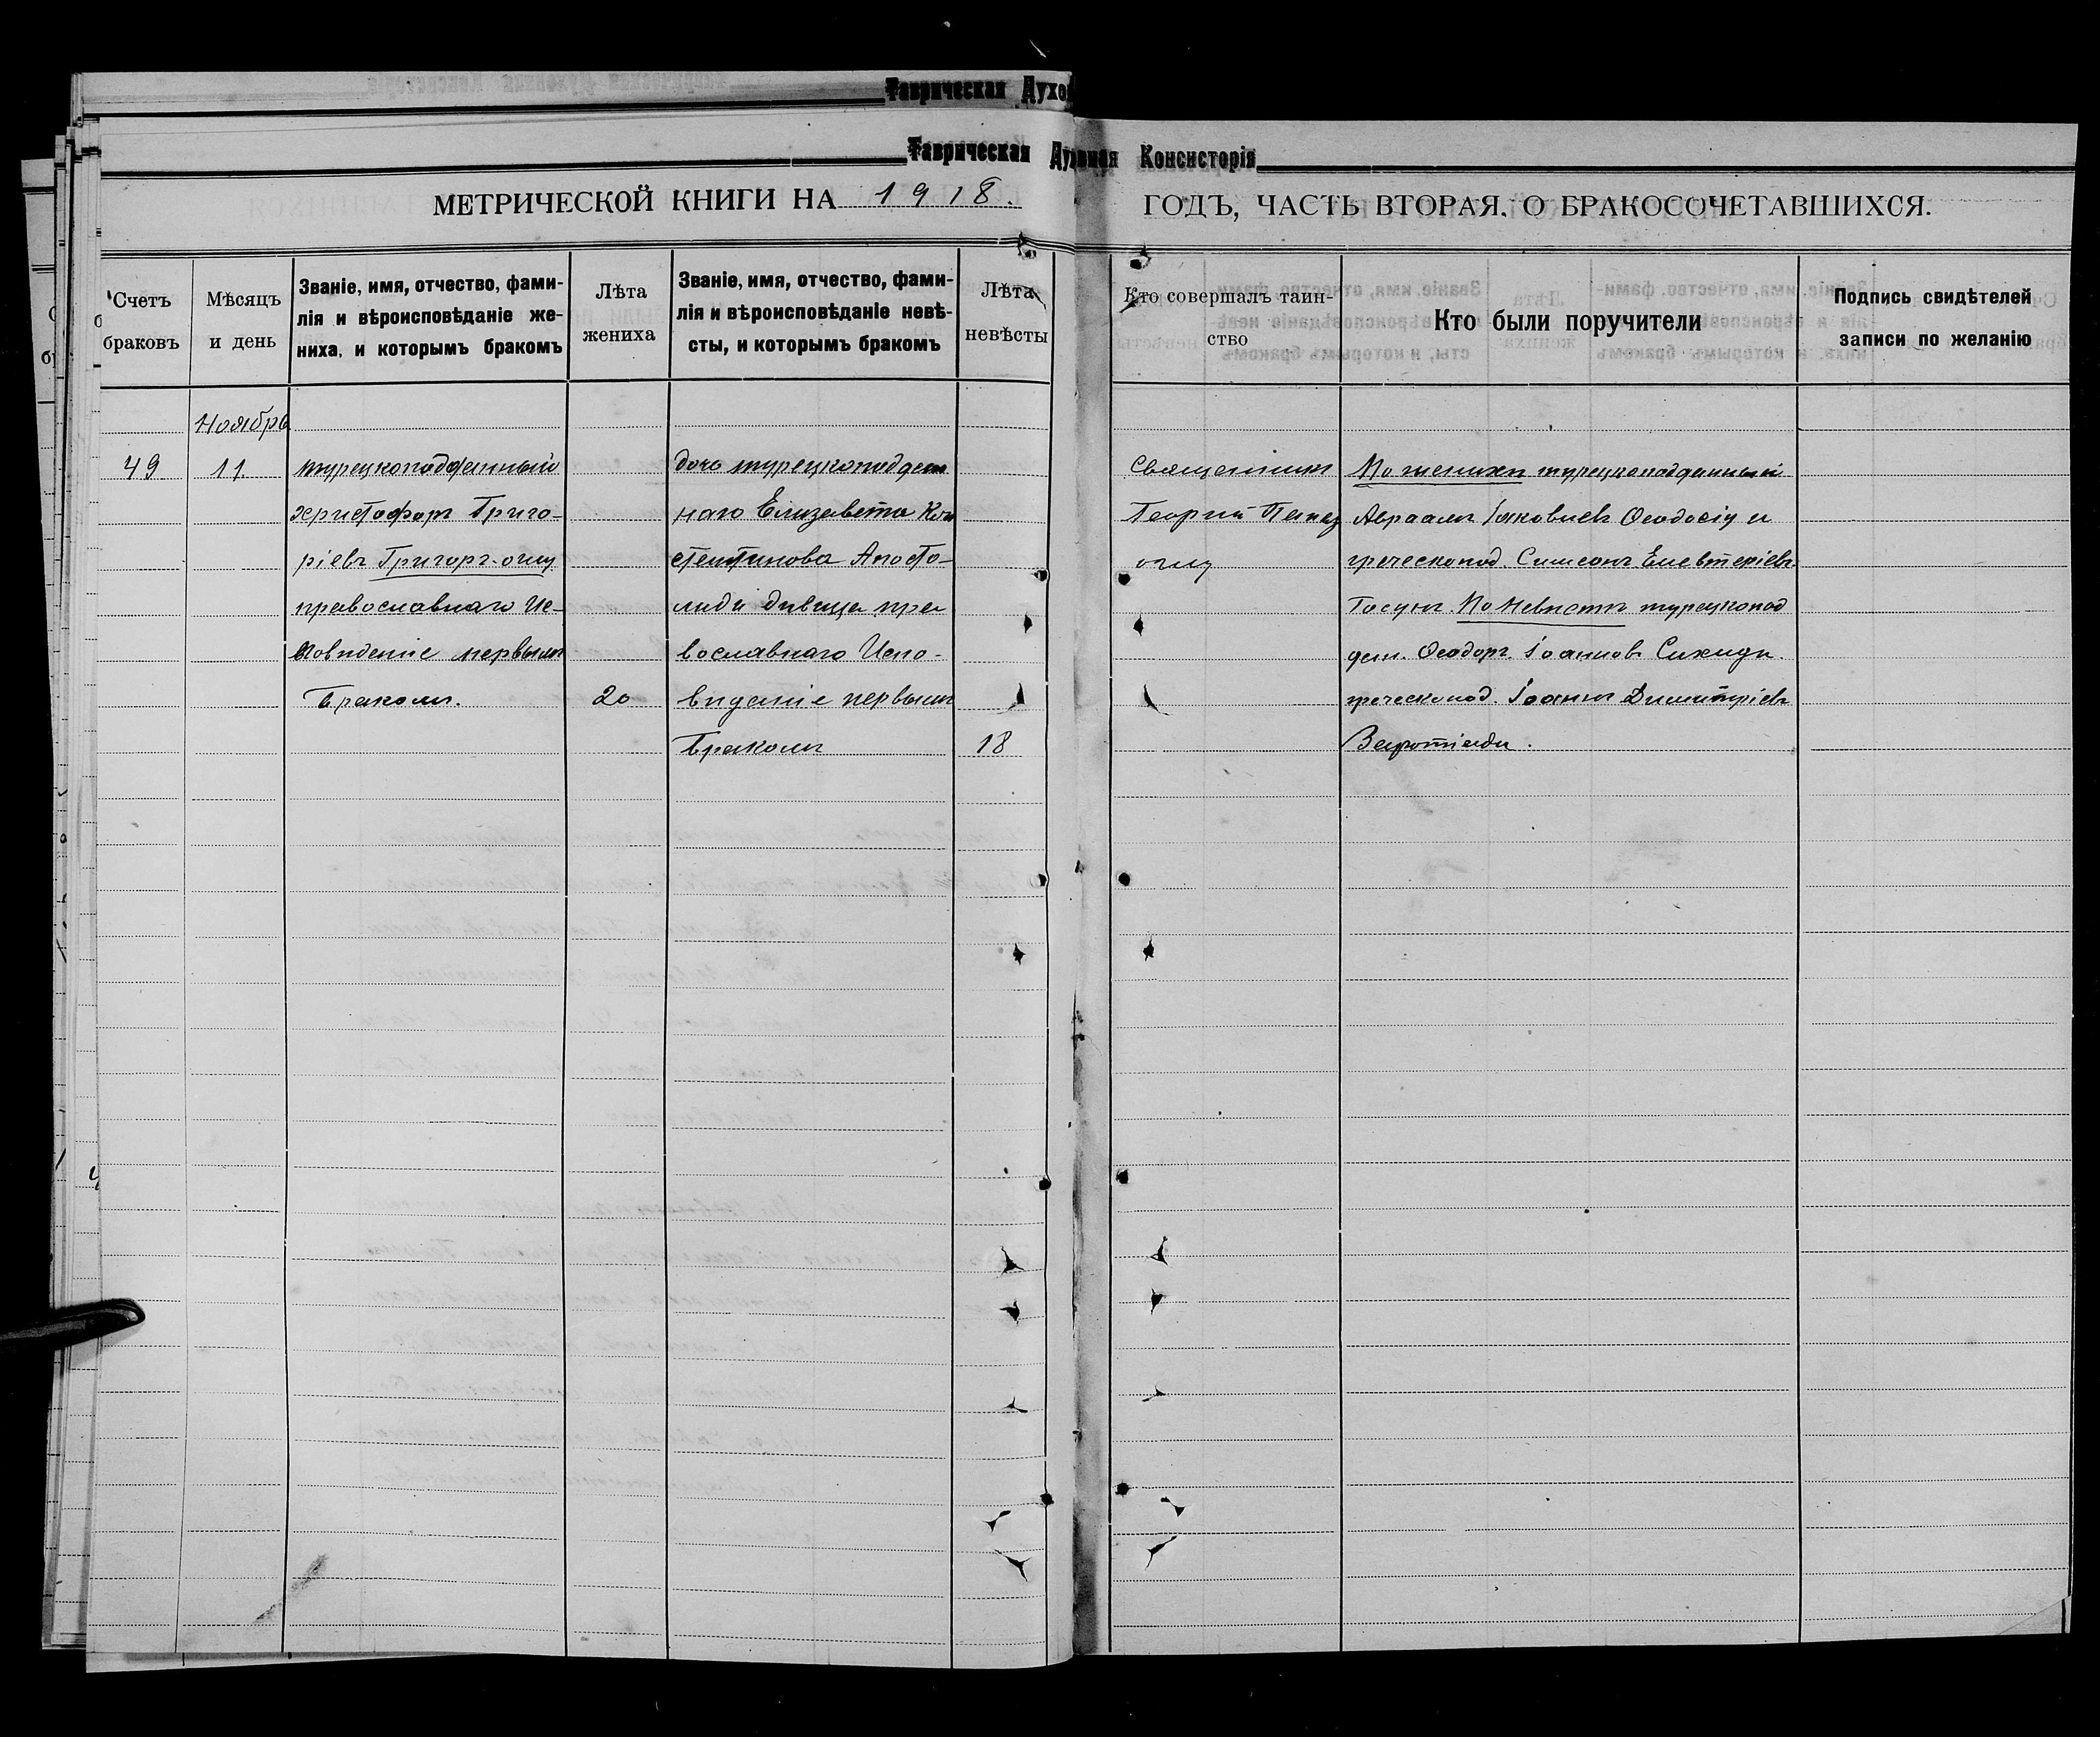 Таврическая Духо
Таврическая Духовная Консисторія
МЕТРИЧЕСКОЙ КНИГИ НА 1918. ГОДЪ, ЧАСТЬ ВТОРАЯ. О БРАКОСОЧЕТАВШИХСЯ.
Счетъ
браковъ
Мѣсяцъ
и день
Званіе, имя, отчество, фами-
лія и вѣроисповѣданіе же-
ниха, и которымъ бракомъ
Лѣта
жениха
Званіе, имя, отчество, фами-
лія и вѣроисповѣданіе невѣ-
сты, и которымъ бракомъ
Лѣта
невѣсты
Кто совершалъ таин-
ство
Кто были поручители
Подпись свидѣтелей
записи по желанію
Ноябрь
49
11.
турецкоподданный
Христофоръ Григо-
ріевъ Григоръ-оглу
православнаго Ис-
повѣденіе первымъ
бракомъ.
20
дочь турецкоподдан
наго Елизавета Кон
стентинова Апосто-
лиди дѣвица пра
вославнаго Испо-
вѣданіе первымъ
бракомъ
18
Священникъ
Георгій
оглу
По женихѣ турецкоподданный
Авраамъ Іаковлевъ Ѳеодосіу и
греческопод. Симеонъ Елевтеріевъ
По невѣстѣ турецкопод
дан. Ѳеодоръ Іоанновъ
греческопод. Іоаннъ Димитріевъ